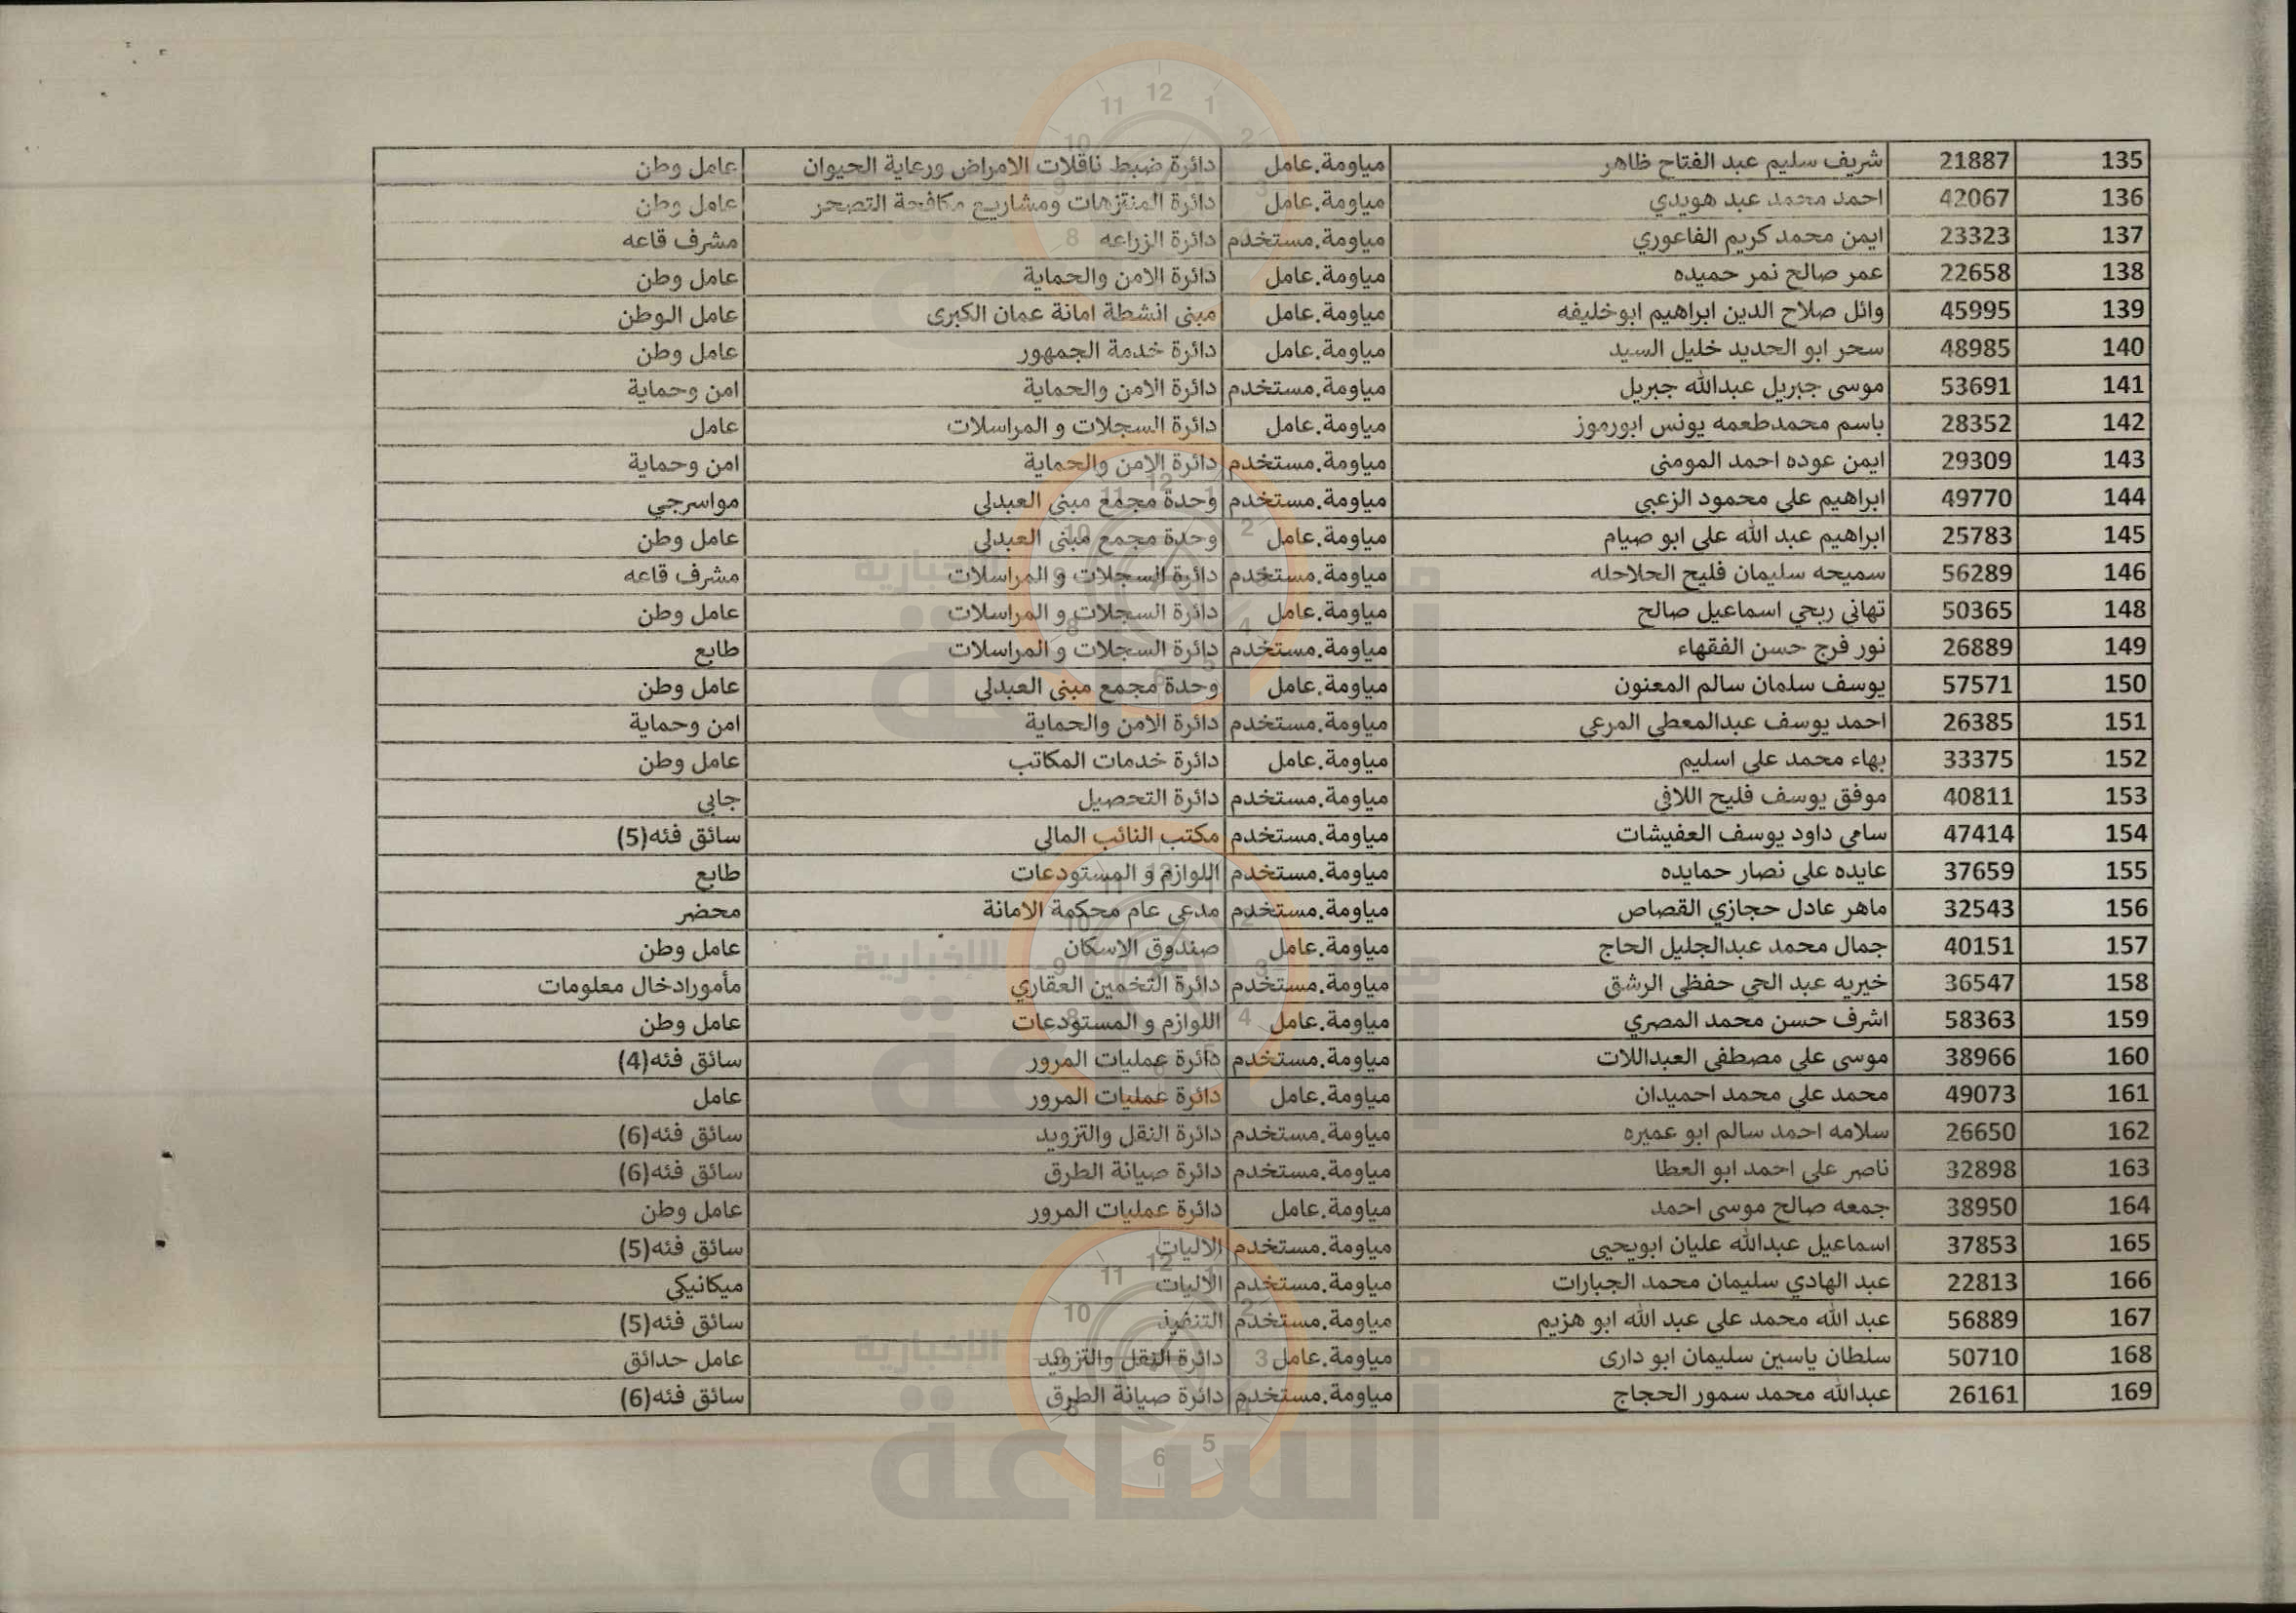 135 21887 شريف سليم عبد الفتاح ظاهر مياومة.عامل دائرة ضبط ناقلات الامراض ورعاية الحيوان عامل وطن
136 42067 احمد محمد عبد هويدي مياومة.عامل دائرة المنتزهات ومشاريع مكافحة التصحر عامل وطن
137 23323 ايمن محمد كريم الفاعوري مياومة.مستخدم دائرة الزراعه مشرف قاعه
138 22658 عمر صالح نمر حميده مياومة.عامل دائرة الامن والحماية عامل وطن
139 45995 وائل صلاح الدين ابراهيم ابوخليفه مياومة.عامل مبنى انشطة امانة عمان الكبرى عامل الوطن
140 48985 سحر ابو الحديد خليل السيد مياومة.عامل دائرة خدمة الجمهور عامل وطن
141 53691 موسى جبريل عبدالله جبريل مياومة.مستخدم دائرة الامن والحماية امن وحماية
142 28352 باسم محمدطعمه يونس ابورموز مياومة.عامل دائرة السجلات و المراسلات عامل
143 29309 ايمن عوده احمد المومنى مياومة.مستخدم دائرة الامن والحماية امن وحماية
144 49770 ابراهيم على محمود الزعبي مياومة.مستخدم وحدة مجمع مبنى العبدلي مواسرجي
145 25783 ابراهيم عبد الله على ابو صيام مياومة.عامل وحدة مجمع مبنى العبدلي عامل وطن
146 56289 سميحه سليمان فليح الحلاحله مياومة.مستخدم دائرة السجلات و المراسلات مشرف قاعه
148 50365 تهاني ربحي اسماعيل صالح مياومة.عامل دائرة السجلات و المراسلات عامل وطن
149 26889 نور فرج حسن الفقهاء مياومة.مستخدم دائرة السجلات و المراسلات طابع
150 57571 يوسف سلمان سالم المعنون مياومة.عامل وحدة مجمع مبنى العبدلي عامل وطن
151 26385 احمد يوسف عبدالمعطى المرعي مياومة.مستخدم دائرة الامن والحماية امن وحماية
152 33375 بهاء محمد على اسليم مياومة.عامل دائرة خدمات المكاتب عامل وطن
153 40811 موفق يوسف فليح اللافي مياومة.مستخدم دائرة التحصيل جابي
154 47414 سامي داود يوسف العفيشات مياومة.مستخدم مكتب النائب المالى سائق فئه(5)
155 37659 عايده على نصار حمايده مياومة.مستخدم اللوازم و المستودعات طابع
156 32543 ماهر عادل حجازي القصاص مياومة.مستخدم مدعى عام محكمة الامانة محضر
157 40151 جمال محمد عبدالجليل الحاج مياومة.عامل صندوق الاسكان عامل وطن
158 36547 خيريه عبد الحي حفظي الرشق مياومة.مستخدم دائرة التخمين العقاري مأمورادخال معلومات
159 58363 اشرف حسن محمد المصري مياومة.عامل اللوازم و المستودعات عامل وطن
160 38966 موسى على مصطفى العبداللات مياومة.مستخدم دائرة عمليات المرور سائق فئه(4)
161 49073 محمد على محمد احميدان مياومة.عامل دائرة عمليات المرور عامل
162 26650 سلامه احمد سالم ابو عميره مياومة.مستخدم دائرة النقل والتزويد سائق فئه(6)
163 32898 ناصر على احمد ابو العطا مياومة.مستخدم دائرة صيانة الطرق سائق فئه(6)
164 38950 جمعه صالح موسى احمد مياومة.عامل دائرة عمليات المرور عامل وطن
165 37853 اسماعيل عبدالله عليان ابويحيى مياومة.مستخدم الاليات سائق فئه(5)
166 22813 عبد الهادي سليمان محمد الجبارات مياومة.مستخدم الاليات ميكانيكي
167 56889 عبد الله محمد على عبد الله ابو هزيم مياومة.مستخدم التنفيذ سائق فئه(5)
168 50710 سلطان ياسين سليمان ابو دارى مياومة.عامل دائرة النقل والتزويد عامل حدائق
169 26161 عبدالله محمد سمور الحجاج مياومة.مستخدم دائرة صيانة الطرق سائق فئه(6)
الإخبارية
الساعة